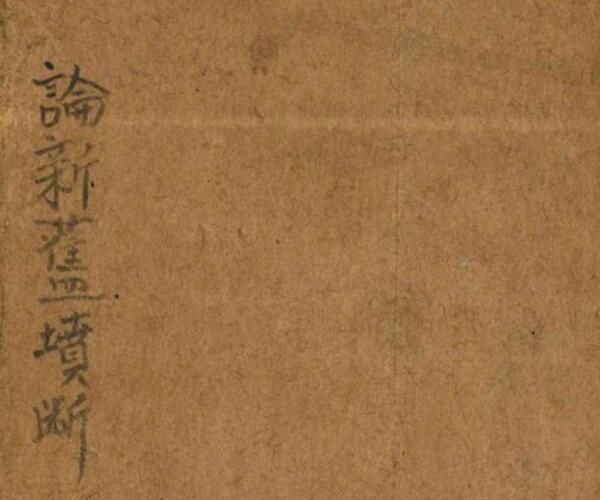 論新舊墳断